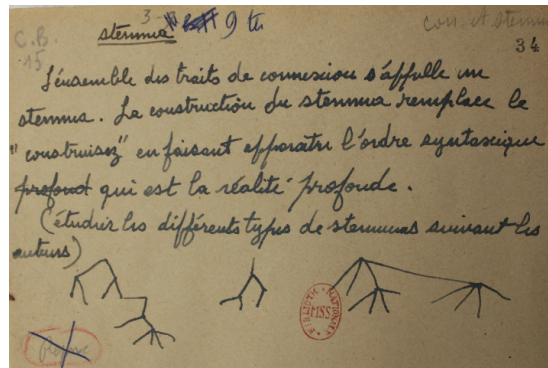 C.B.
15
3
stemma
9 ter
conn. et stemma
34
L'ensemble des traits de connexion s'appelle un
stemma. La construction du stemma remplace le
"construisez" en faisant apparaître l'ordre syntaxique
profond qui est la réalité profonde.
(étudier les différents types de stemmas suivant les
auteurs)
BIBLIOTH. NATIONALE
MSS